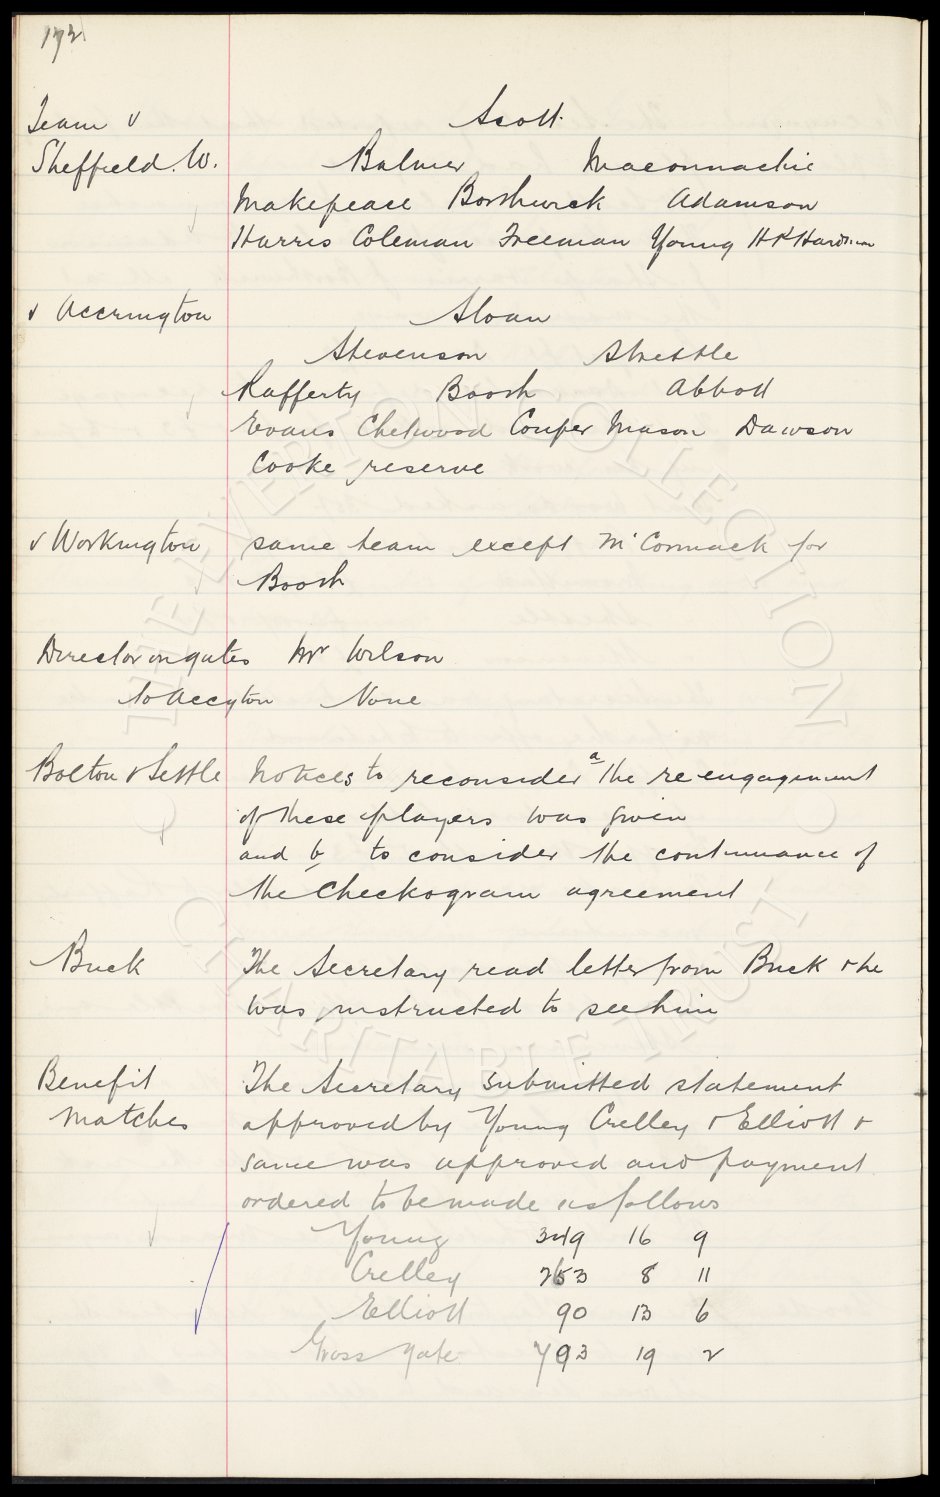 172
Team v Scott
Sheffield. W. Balmer Maconnachie
Makepeace Borthwick Adamson
Harris Coleman Freeman Young H P Hardman
v Accrington Sloan
Stevenson Strettle
Rafferty Booth Abbott
Evans Chetwood Couper Mason Dawson
Cooke reserve
v Workington same team except McCormack for
Booth
Director on gates Mr Wilson
to Accgton None
Bolton & Settle Notices to reconsider a the re engagement
of these players was given
and b to consider the continuance of
the Checkogram agreement
Buck The Secretary read letter from Buck & he
was instructed to see him
Benefit The Secretary submitted statement
Matches approved by Young Crelley & Elliott &
same was approved and payment
ordered to be made as follows
Young 349 16 9
Crelley 253 8 11
Elliott 90 13 6
Gross Gate 793 19 2
THE EVERTON COLLECTION
CHARITABLE TRUST